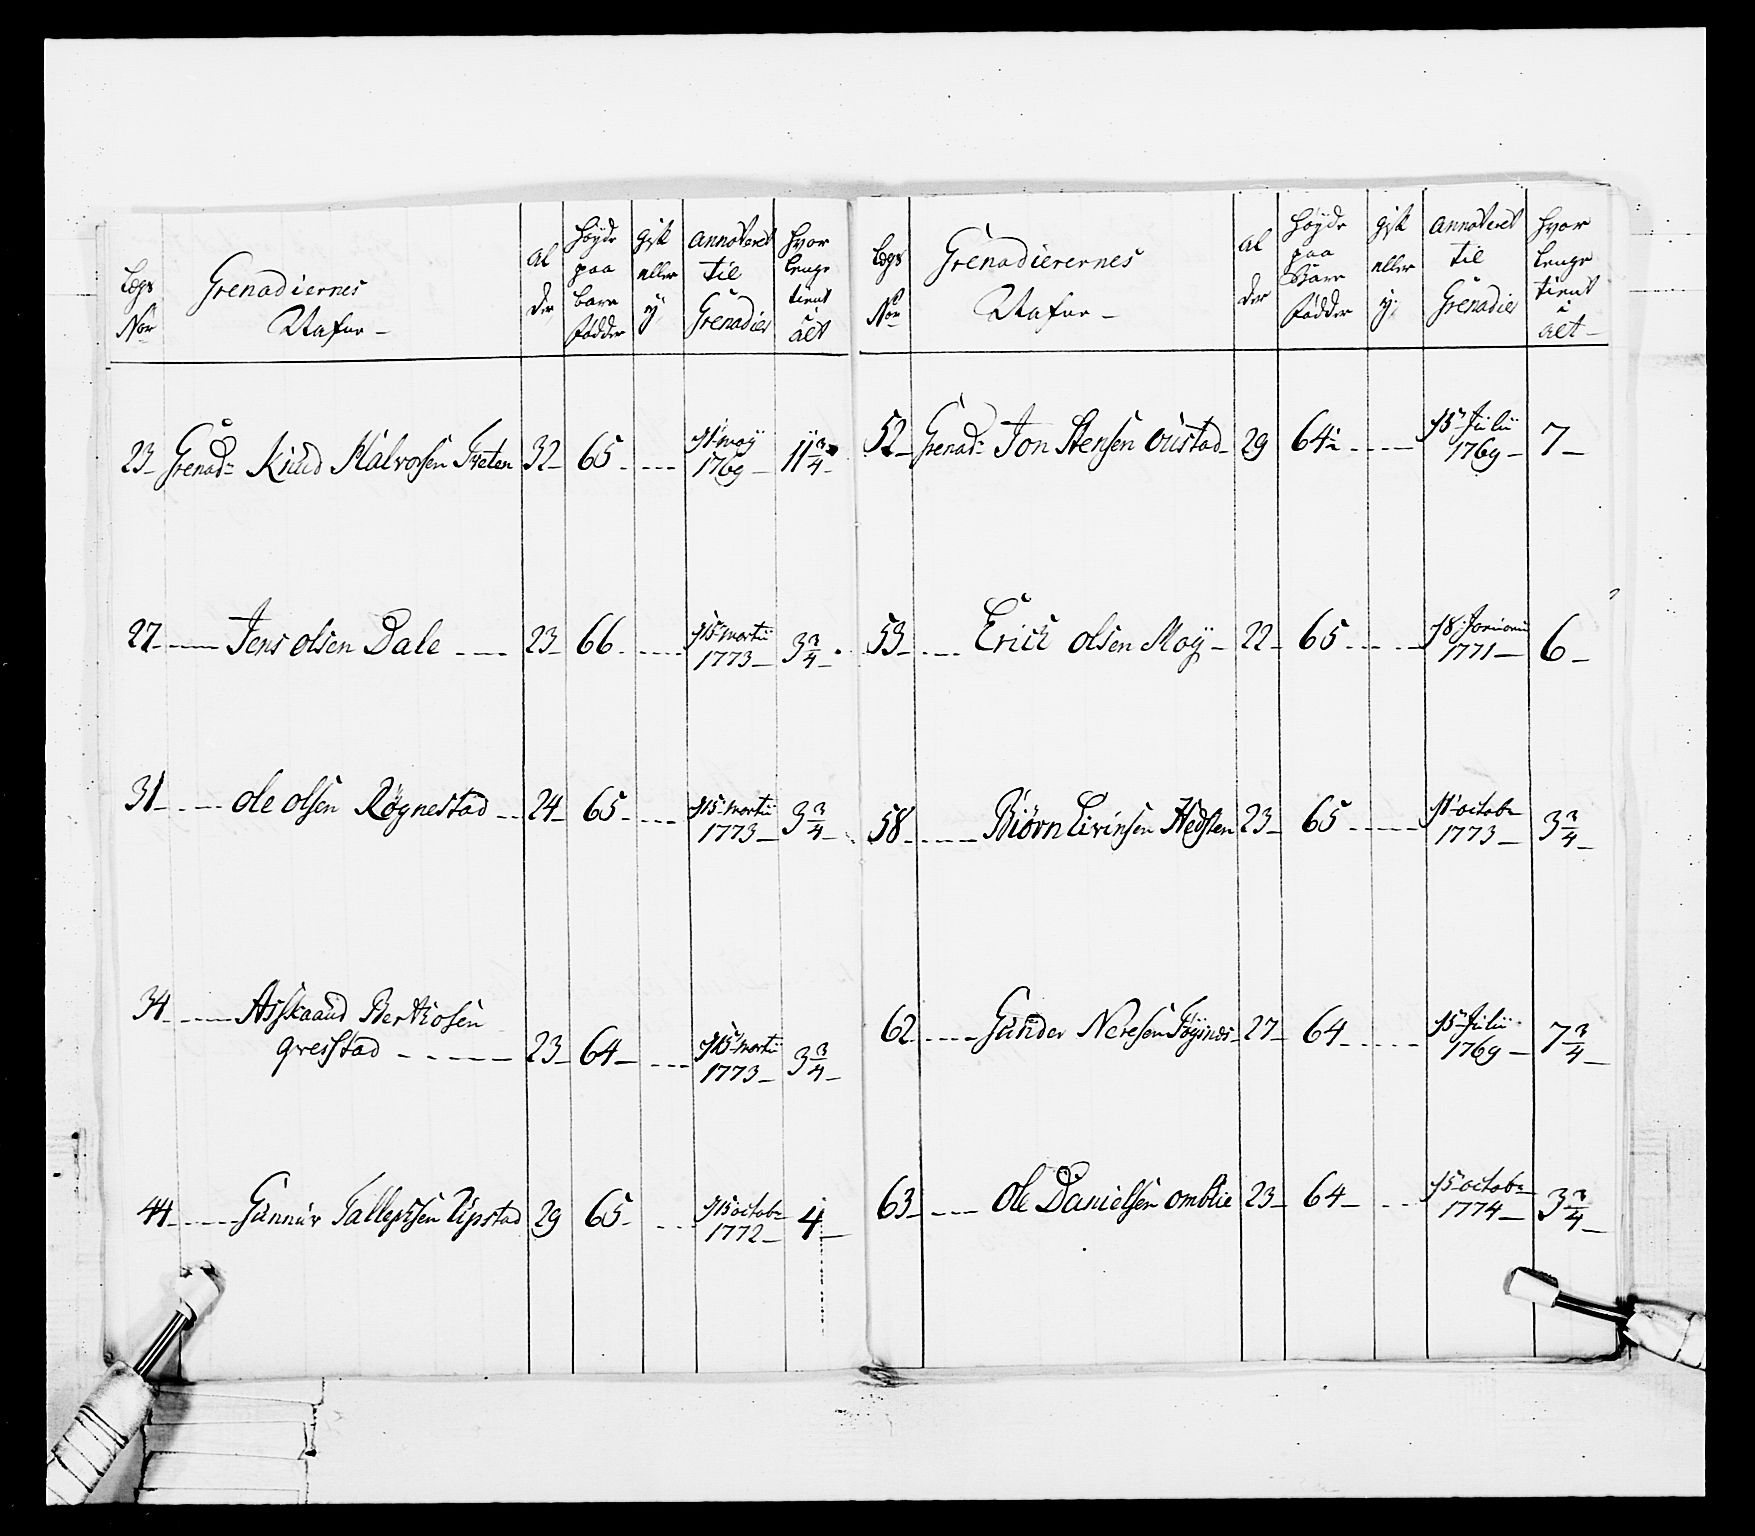 Legs
No
Grenadiernes
Nafne
Al
der
Høyde
paa
bare
fødder
gift
eller
ey
annoteret
til
Grenadier
hvor
lenge
tient
i
alt
23 Grenad: Knud Halvorsen Treten 32 65 may 1769 11 3/4
27 Jens olsen Dale 23 66 15 martii 1773 3 3/4
31 ole olsen Røgnestad 24 65 15 martii 1773 3 3/4
34 Berthosen
Greistad 23 64 15 martii 1773 3 3/4
44 Gunnur Upstad 29 65 15 octobr 1772 4
Legs
No
Grenadierernes
Nafne
Al
der
Høyde
paa
Bare
fødder
gift
eller
ey
annoteret
til
Grenadier
hvor
lenge
tient
i
alt
52 Grenad: Jon Stensen oustad 29 64½ 15 Julii 1769 7
53 Erich olsen Moy 22 65 1771 6
58 Biørn Hedsten 23 65 octobr 1773 3 3/4
62 Gunder 27 64 15 Julii 1769 7 3/4
63 ole Danielsen omblie 23 64 15 octobr 1774 3 3/4